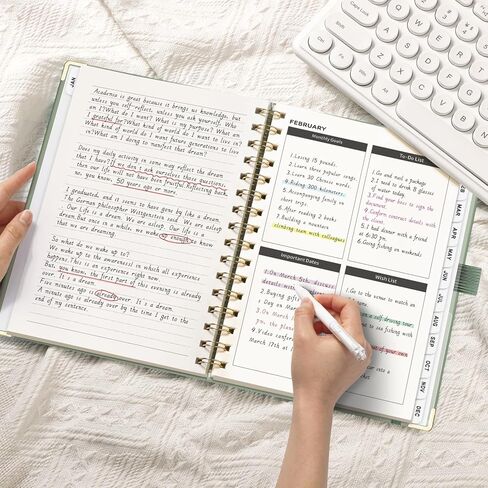 JAN
Academia is great because it brings us knowledge, but
unless you self-reflect, unless you ask yourself. Who
an I?What do I want? What is my purpose? What am
I grateful for?What kind of world do I want to live
in?What kind of world do I want future generations to live
in?What am I doing to manifest that dream?
Does my daily activity in some way reflect the dream
that I have?If we don't ask ourselves those questions,
then our life will not have been fruitful.Reflecting back
no, you know, 50 years ago or more.
I graduated, and it seems to have gone by like a dream.
The German philosopher Wittgenstein said We are asleep.
Our Life is a dream. We are asleep. Our Life is a
dream.But once in a while, we wake up enough to know
So what do we wake up to?
We wake up to the awareness in which all experience
happens.This is an experience right now.
But, you know, the first part of this evening is already
over. It's a dream.
Five minutes ago is already over. It's a dream.
A minute ago is already over by the time I get to the
end of my sentence.
FEBRUARY
Monthly Goals
1.Losing 15 pounds.
2.Learn three popular songs.
3.Learn 30 Chinese words.
4.Riding 300 kilometers.
5.Accompanying family
on short trips.
6.After reading 2 books
7.Building a mountain
climbing team with colleagues
To-Do List
1.Go and
of water today.
the
document.
4.Confirm contract details with
the client.
5.I had dinner with a friend
at 6:30 pm.
6.Going fishing on weekends.
Important Dates
1.On March 5th, discuss
details with
2.Buying
3.On March
the
4.Video
March 17th at
Wish List
1.Go to the
on a self-driving tour.
to sea fishing with
of your own
into a
MAR
APR
MAY
JUN
JUL
AUG
SEP
OCT
NOV
DEC